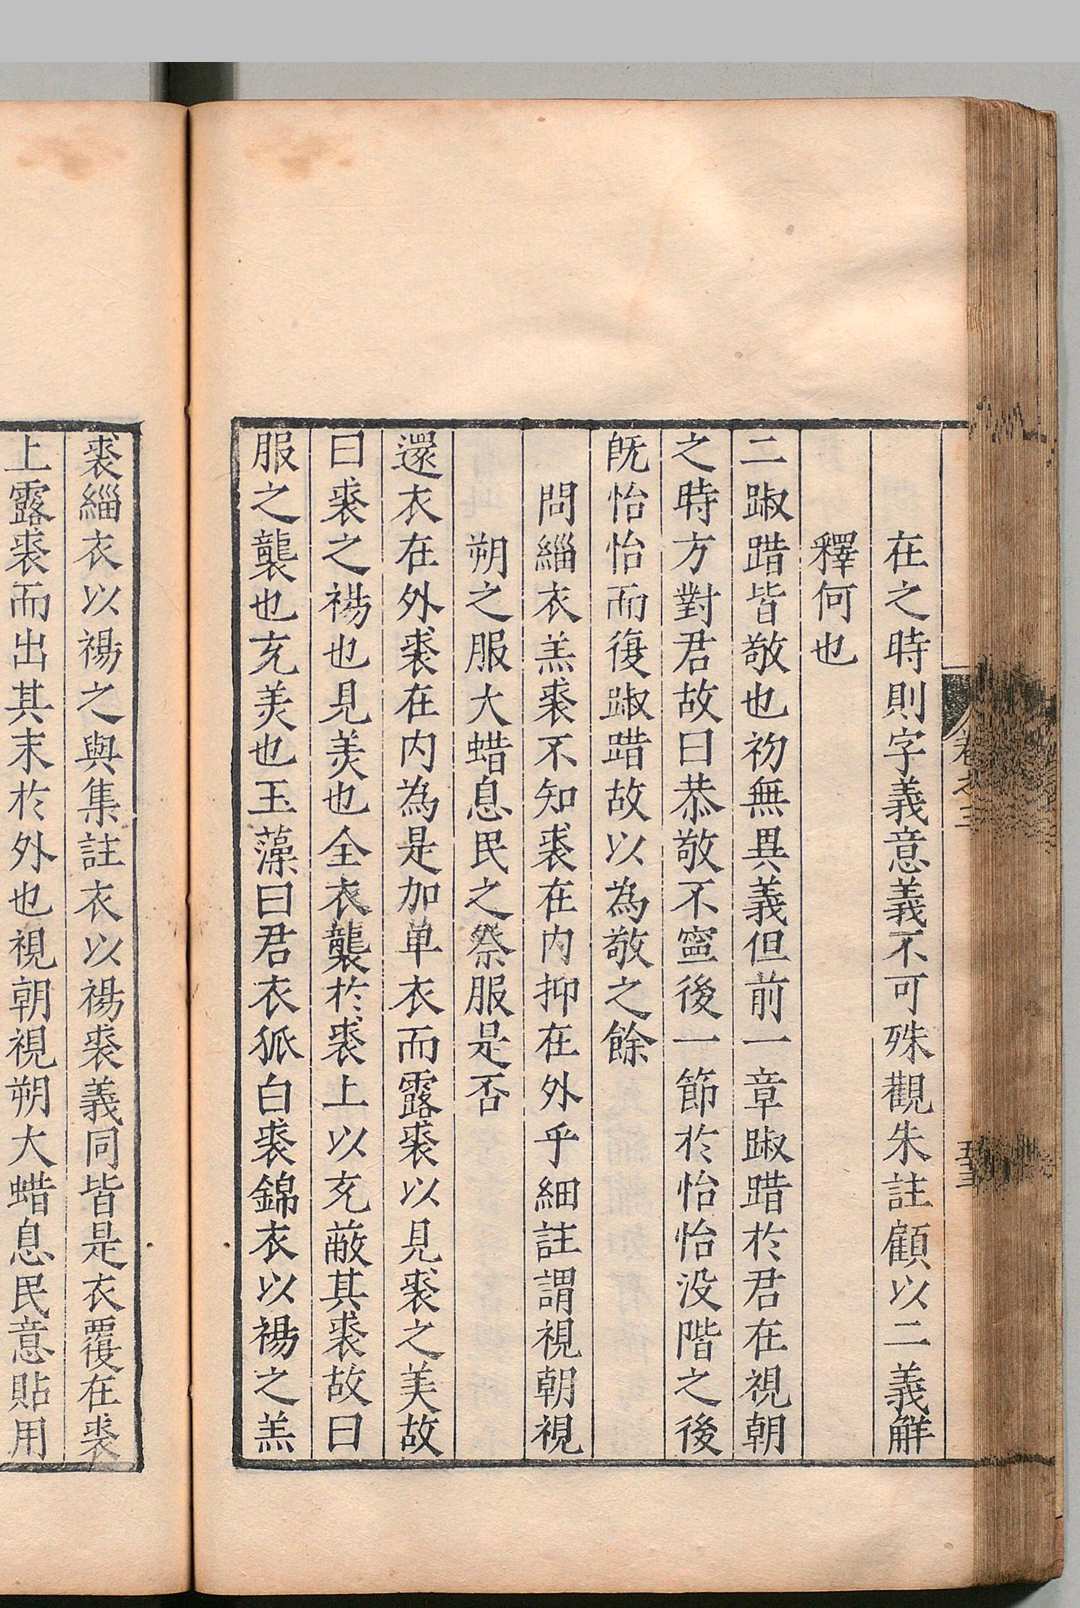 在之時則字義意義不可殊觀朱註顧以二義解
釋何也
二踧踖皆敬也初無異義但前一章踧踖於君在視朝
之時方對君故曰恭敬不寧後一節於怡怡沒階之後
旣怡怡而復踧踖故以為敬之餘
問緇衣羔裘不知裘在內抑在外乎細註謂視朝視
朔之服大蜡息民之祭服是否
還衣在外裘在內為是加单衣而露裘以見裘之美故
曰裘之裼也見羙也全衣襲於裘上以充蔽其裘故曰
服之襲也充羙也玉藻曰君衣狐白裘錦衣以裼之羔
裘緇衣以裼之與集註衣以裼裘義同皆是衣覆在裘
上露裘而出其末於外也視朝視朔大蜡息民意貼用
卷之三
五十三